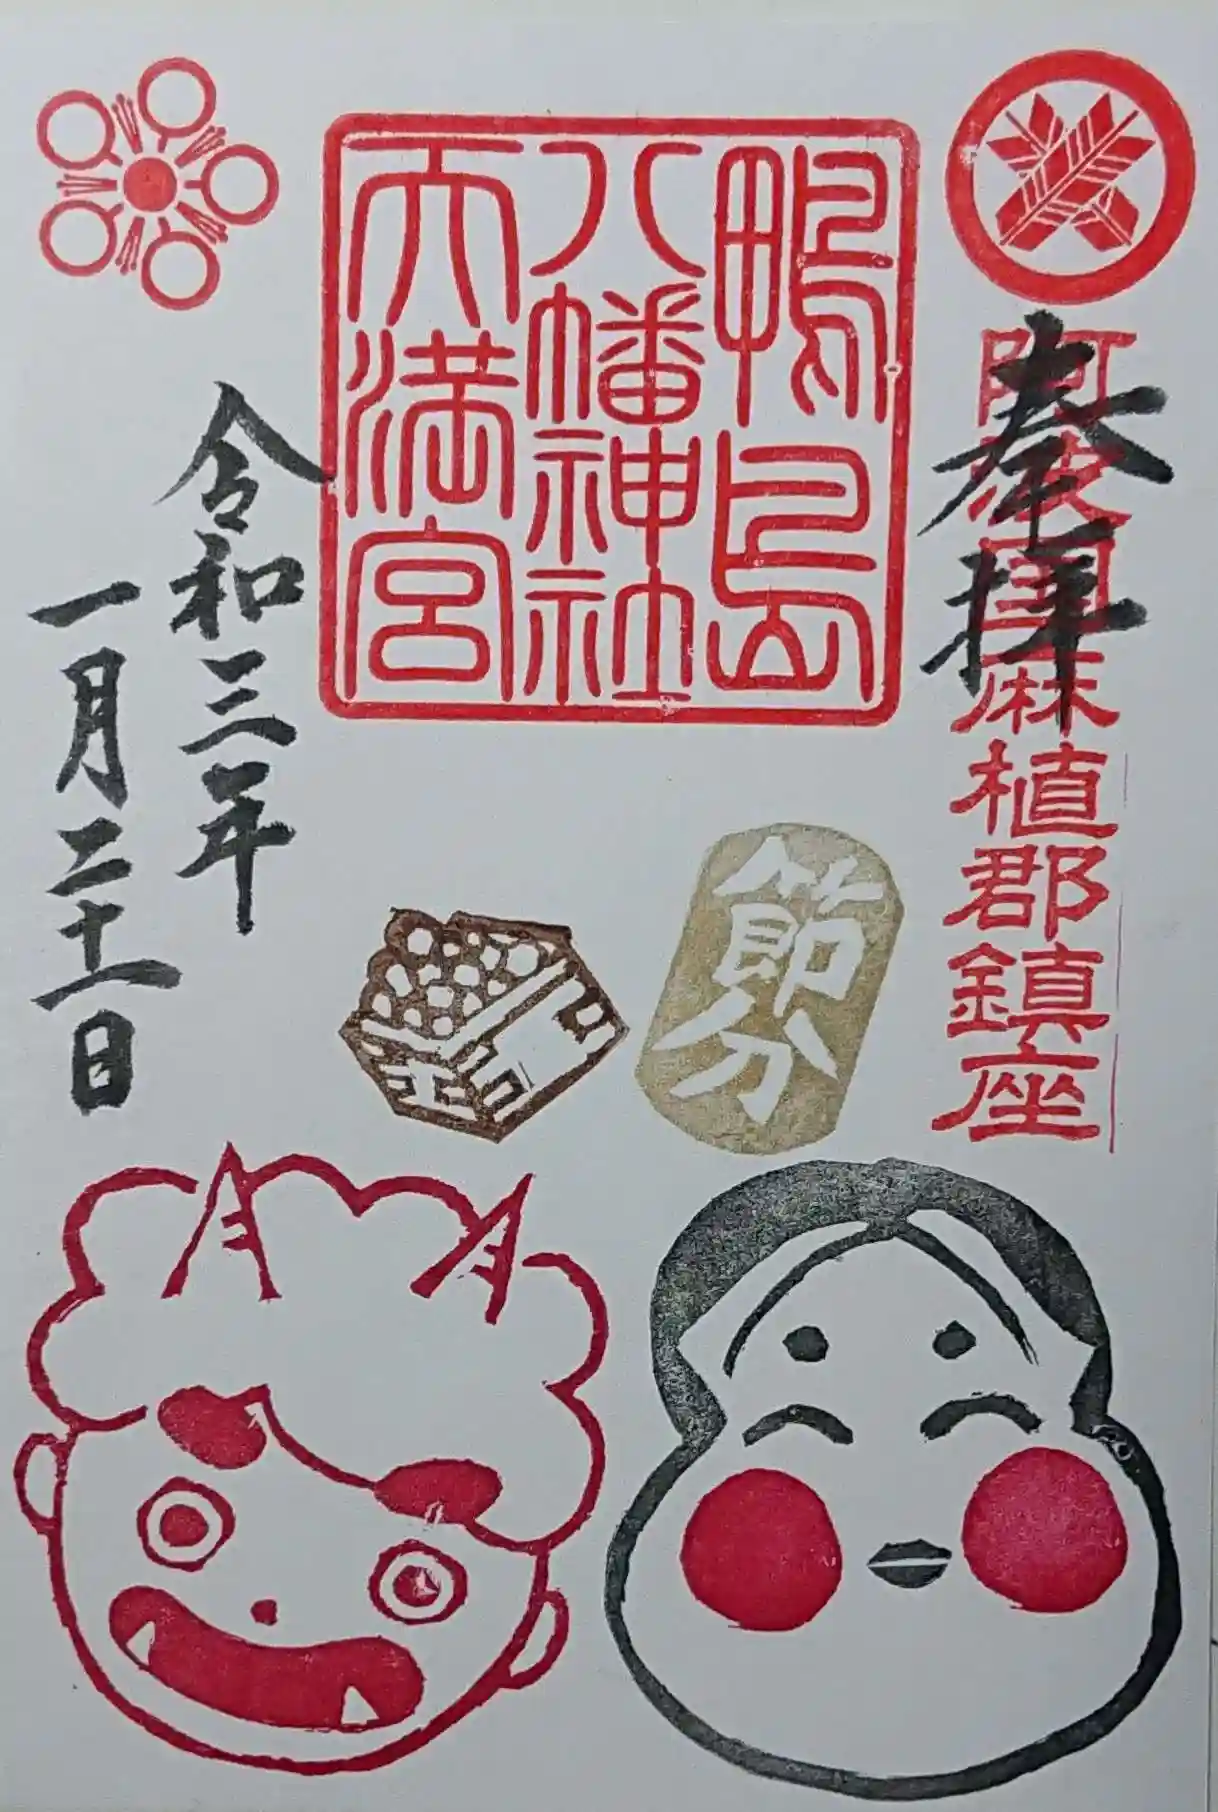 奉拝
阿波国麻植郡鎮座
鴨島
八幡神社
天満宮
令和三年
一月二十一日
節分